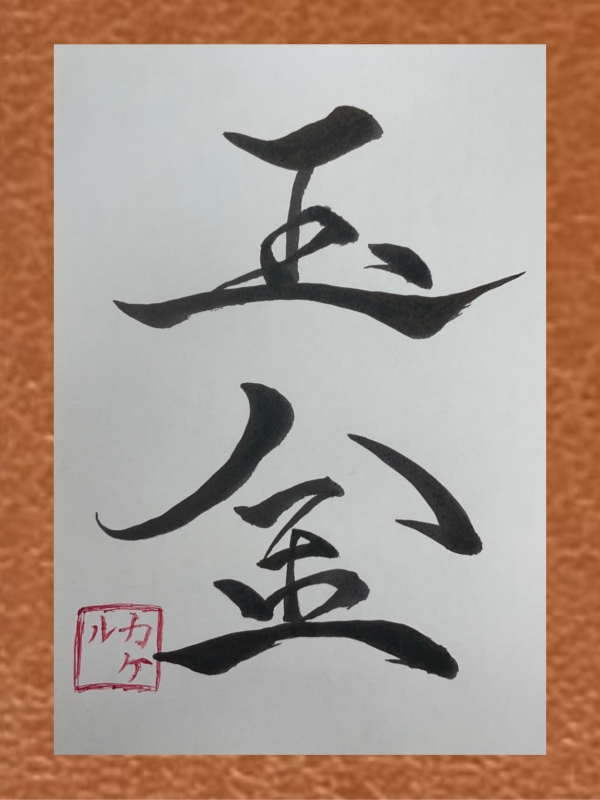 玉金
カケル